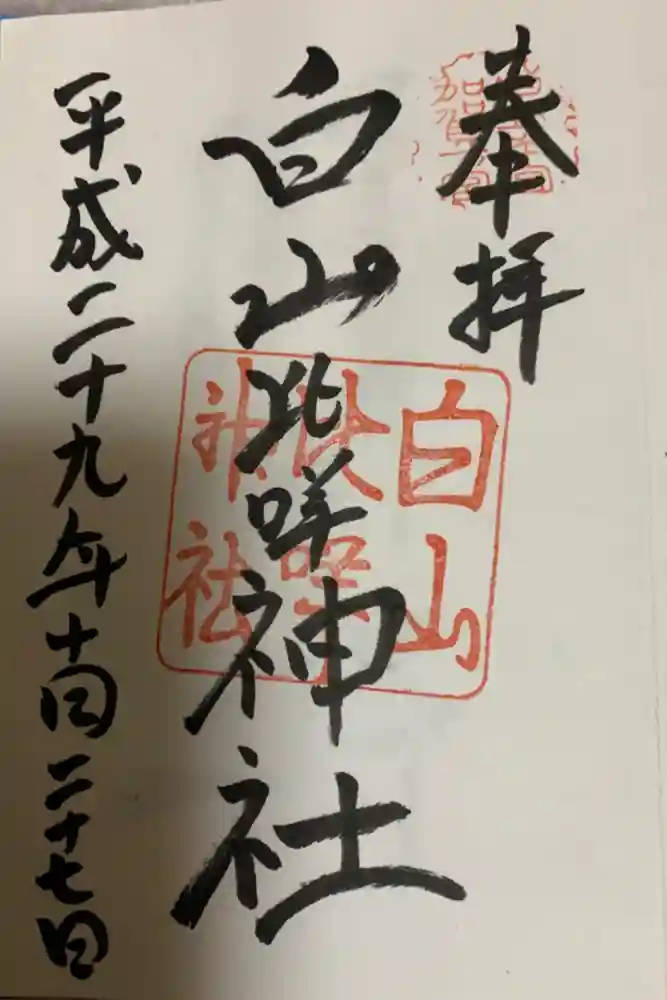 奉拝
加賀一宮
白山比咩神社
白山
比咩
神社
平成二十九年十月二十七日